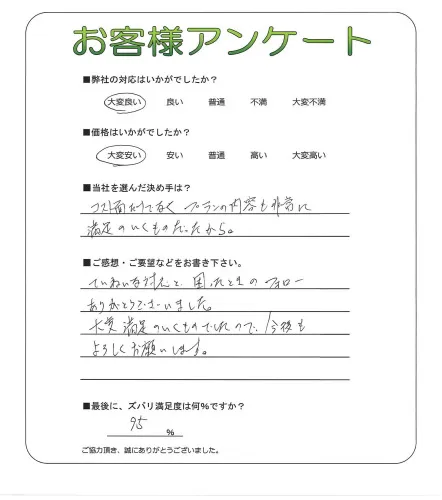 お客様アンケート
■弊社の対応はいかがでしたか?
大変良い 良い 普通 不満 大変不満
■価格はいかがでしたか?
大変安い 安い 普通 高い 大変高い
■当社を選んだ決め手は?
コスト面だけでなく プランの内容も非常に
満足のいくものだったから。
■ご感想・ご要望などをお書き下さい。
ていねいな対応と、困ったときのフォロー
ありがとうございました。
大変満足のいくものでしたので、今後も
よろしくお願いします。
■最後に、ズバリ満足度は何%ですか?
95 %
ご協力頂き、誠にありがとうございました。